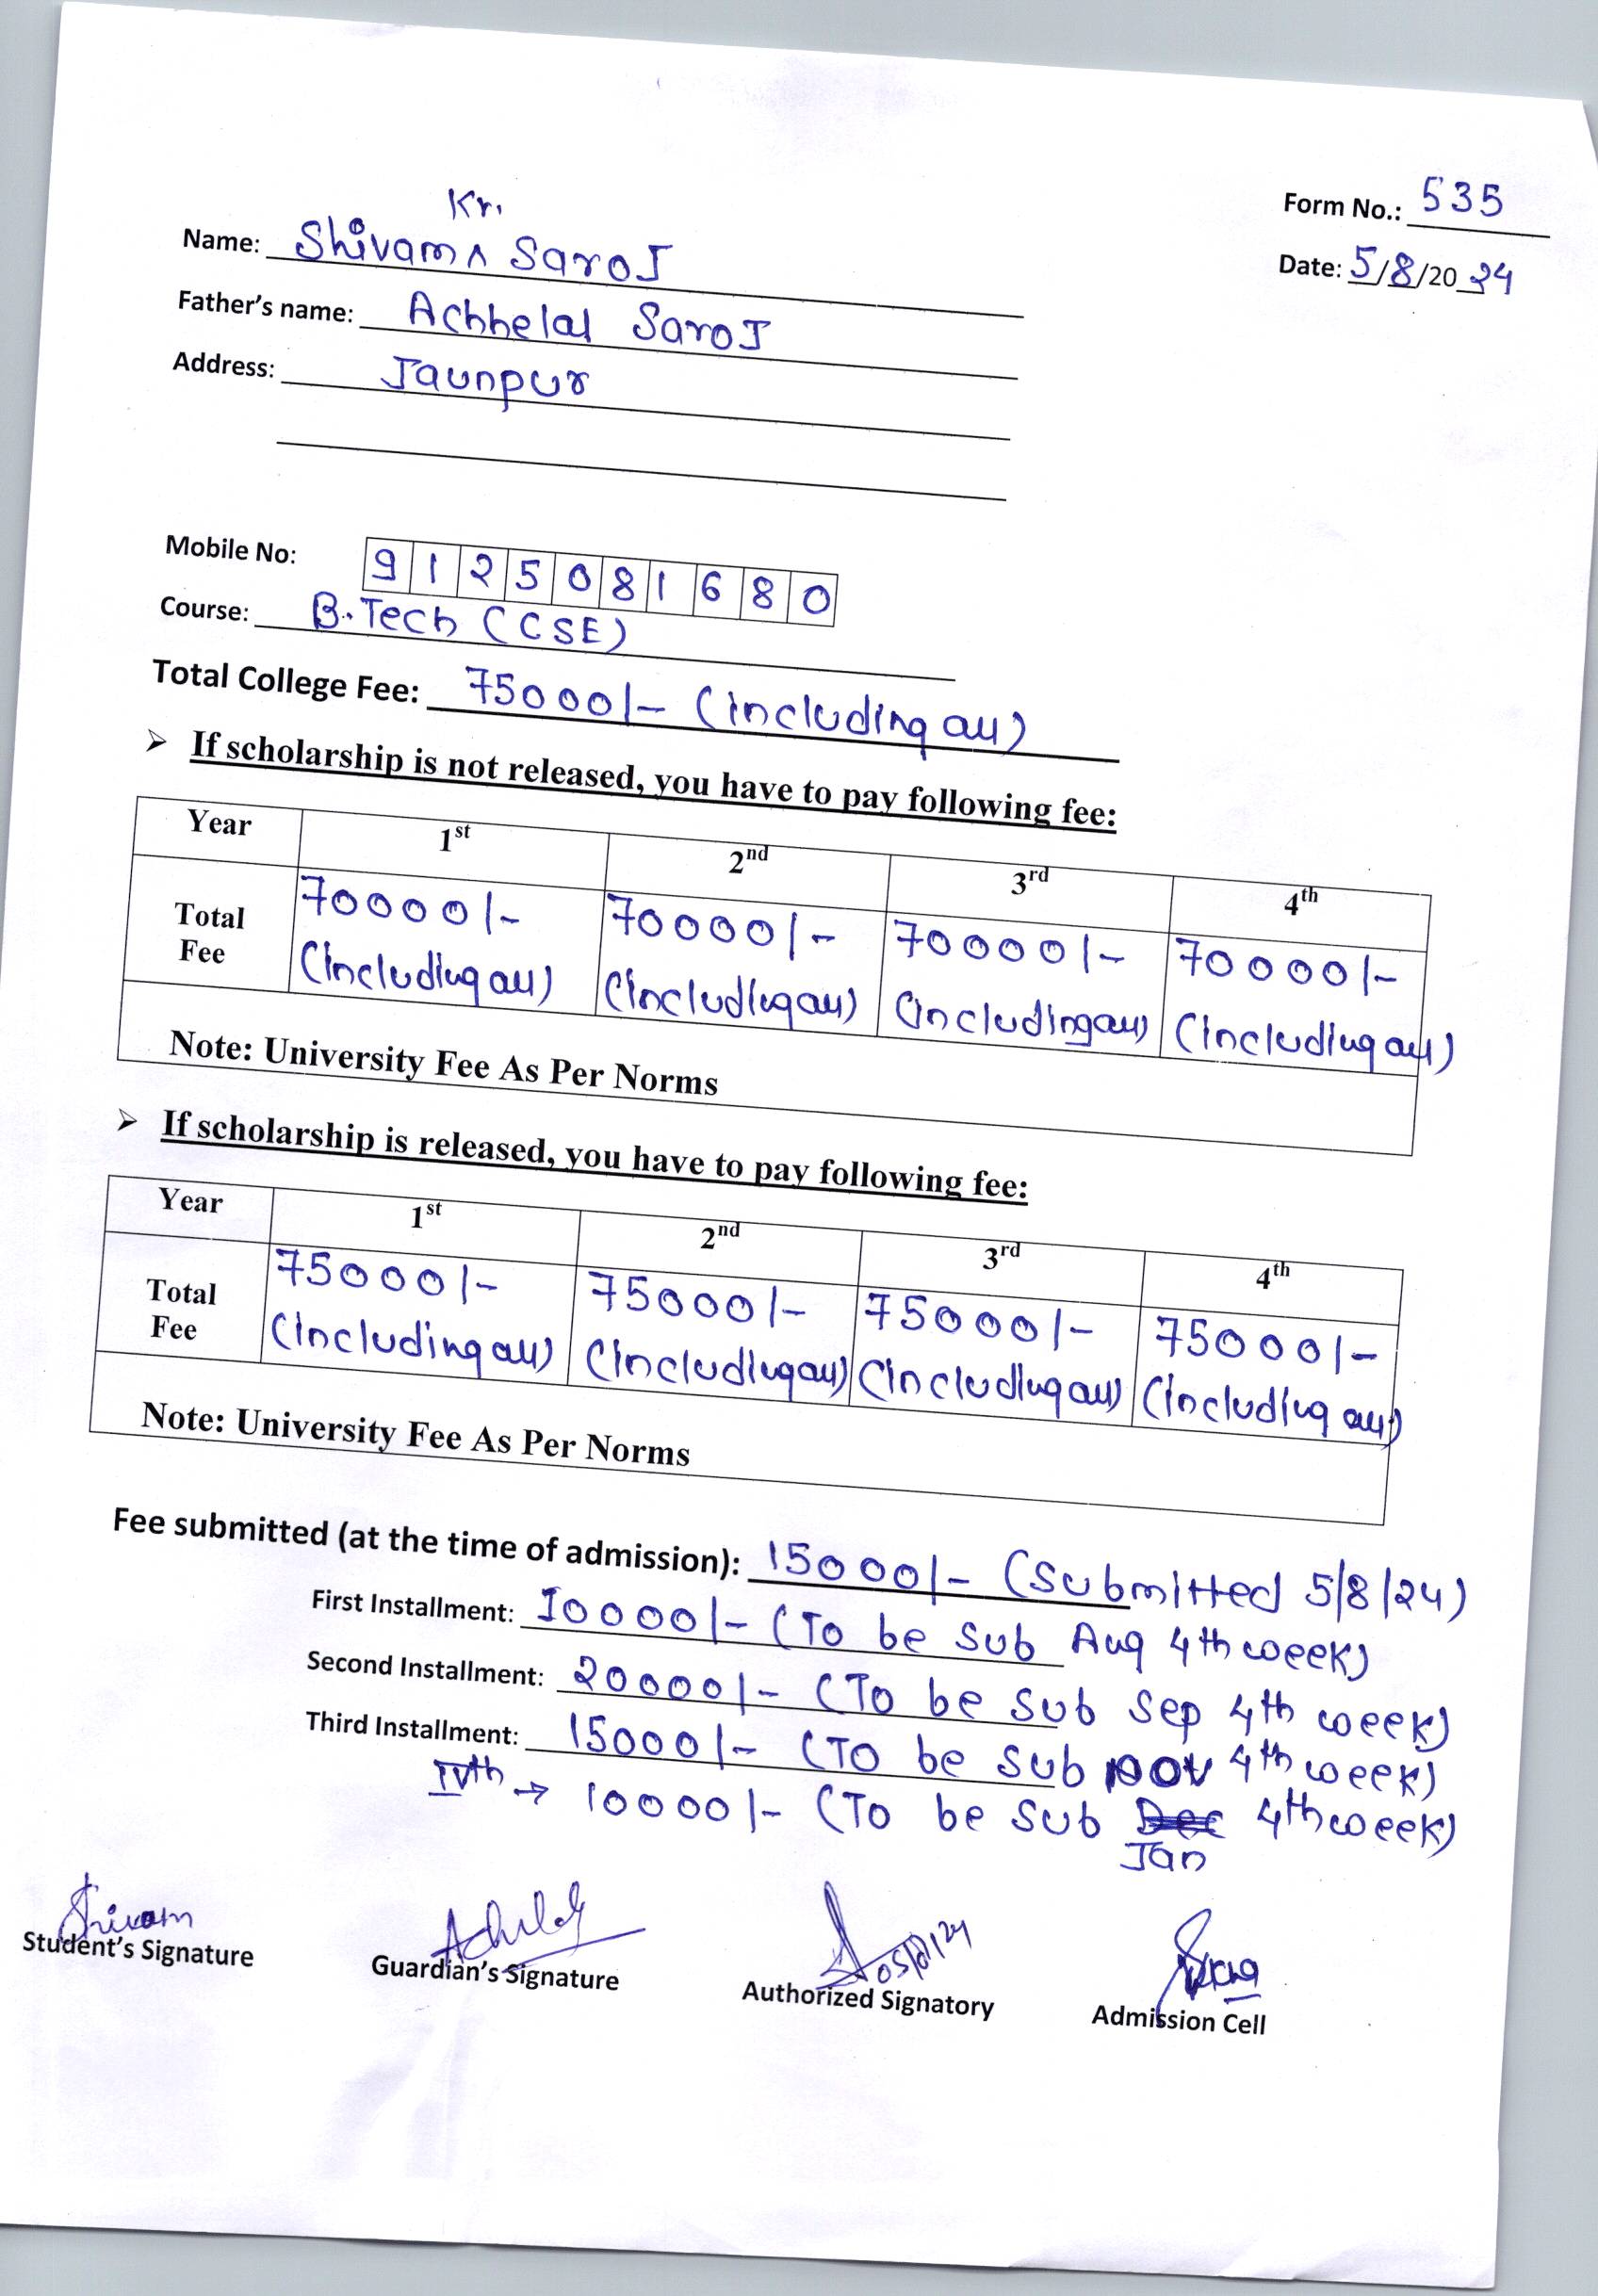 Form No.: 535
Date: 5/8/2024
Kr.
Name: Shivam ^ Saroj
Father's name: Achhelal Saroj
Address: Jaunpur
Mobile No: 9125081680
Course: B.Tech (CSE)
Total College Fee: 75000/- (including all)
➢ If scholarship is not released, you have to pay following fee:
Year 1st 2nd 3rd 4th
Total Fee 70000/- 70000/- 70000/- 70000/-
(Including all) (Including all) (Including all) (Including all)
Note: University Fee As Per Norms
➢ If scholarship is released, you have to pay following fee:
Year 1st 2nd 3rd 4th
Total Fee 75000/- 75000/- 75000/- 75000/-
(Including all) (Including all) (Including all) (Including all)
Note: University Fee As Per Norms
Fee submitted (at the time of admission): 15000/- (Submitted 5/8/24)
First Installment: 10000/- (To be sub Aug 4th week)
Second Installment: 20000/- (To be sub Sep 4th week)
Third Installment: 15000/- (To be sub Nov 4th week)
IVth → 10000/- (To be sub Dec 4th week)
Jan
Shivam
05/8/24
Student's Signature Guardian's Signature Authorized Signatory Admission Cell